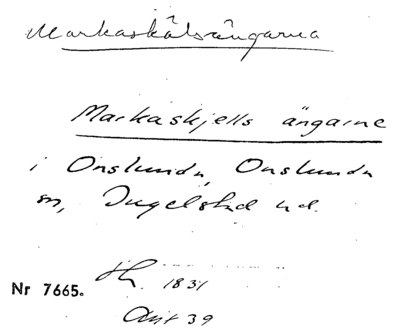 Markaskälsängarna
Markaskjells ängarne
i Onslunda, Onslunda
sn, Ingelstad hd.
1831
Nr 7665.
Akt 39